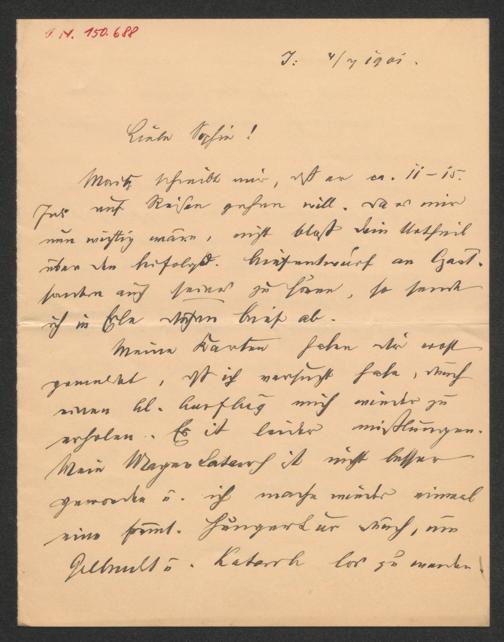 I. N. 150.688
J: 4/7 1901.
Liebe Sophie!
Moritz schreibt mir, daß er ca. 11-15.
auf Reisen gehen will. Da es mir
nun wichtig wäre, nicht bloß dein Urtheil
über den Briefentwurf an
auch seines zu hören, so sende
ich in Eile diesen Brief ab.
Meine Karten haben dir wohl
gemeldet, daß ich versucht habe, durch
einen kl. Ausflug mich wieder zu
erholen. Es ist leider mißlungen.
Mein Magenkatarrh ist nicht besser
geworden u. ich mache wieder einmal
eine Hungerkur durch, um
Gelbsucht u. Katarrh los zu werden!